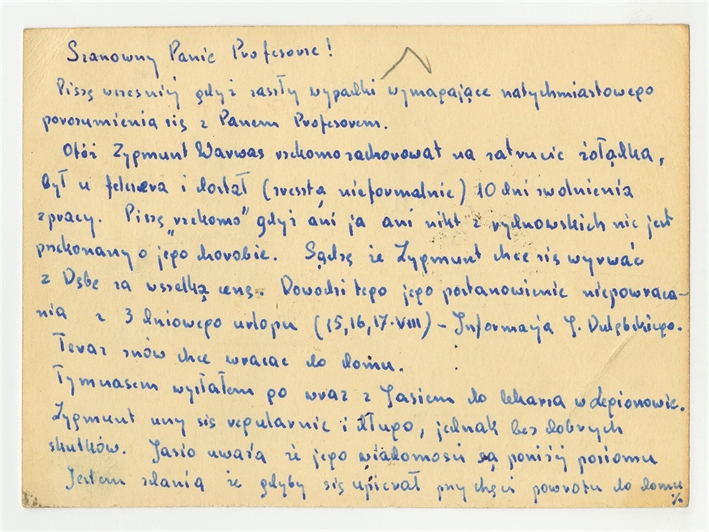 Szanowny Panie Profesorze!
Piszę wcześniej gdyż zaszły wypadki wymagające natychmiastowego
porozumienia się z Panem Profesorem.
Otóż Zygmunt Warwas rzekomo zachorował na zatrucie żołądka,
był u felczera i dostał (zresztą nieformalnie) 10 dni zwolnienia
z pracy. Piszę „rzekomo" gdyż ani ja ani nikt z rydnowskich nie jest
przekonany o jego chorobie. Sądzę że Zygmunt chce się wyrwać
z Dębe za wszelką cenę. Dowodzi tego jego postanowienie niepowraca-
nia z 3 dniowego urlopu (15,16,17.VIII) - Informacja J. Dulębskiego.
Teraz znów chce wracać do domu.
Tymczasem wysłałem go wraz z Jasiem do lekarza w Legionowie.
Zygmunt uczy się regularnie i długo, jednak bez dobrych
skutków. Jasio uważa że jego wiadomości są poniżej poziomu
Jestem zdania że gdyby się upierał przy chęci powrotu do domu
./.